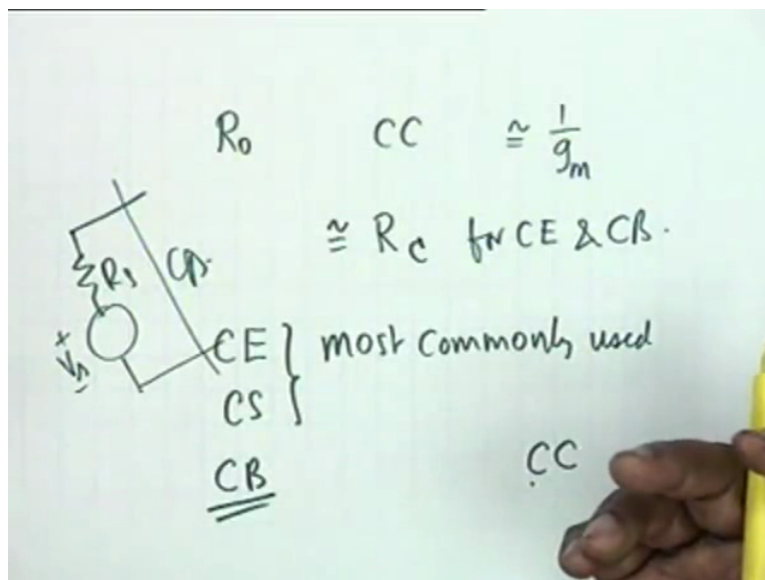 R₀ CC ≅ 1/gₘ
≅ R_C for CE & CB.
Rs
+
Vs
-
CE } most commonly used
CS
CB CC